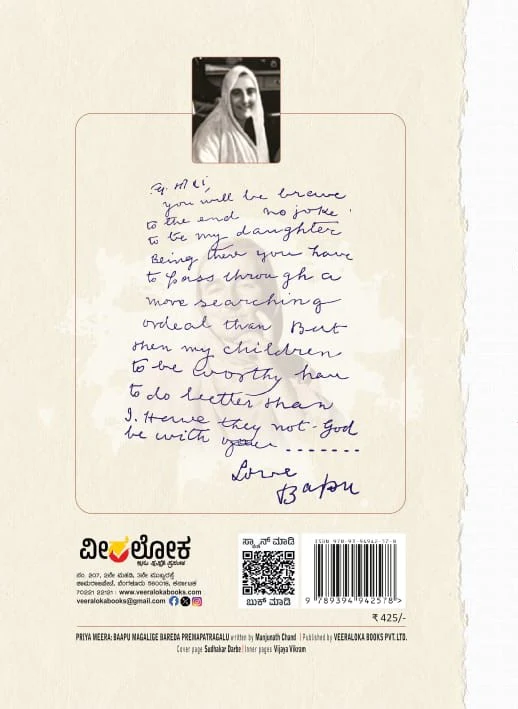 चि. मीरा,
you will be brave
to the end no joke
to be my daughter
Being there you have
to pass through a
more searching
ordeal than But
then my children
to be worthy have
to do better than
I. Have they not - God
be with you .......
Love
Bapu
ವೀರಲೋಕ
ನಂ. 207, 2ನೇ ಮಹಡಿ, 3ನೇ ಮುಖ್ಯರಸ್ತೆ
ಚಾಮರಾಜಪೇಟೆ, ಬೆಂಗಳೂರು 560018, ಕರ್ನಾಟಕ
70221 22121 : www.veeralokabooks.com
veeralokabooks@gmail.com
ಸ್ಕ್ಯಾನ್ ಮಾಡಿ
ಬುಕ್ ಮಾಡಿ
ISBN 978-93-94942-57-8
9 789394 942578 >
₹ 425/-
PRIYA MEERA: BAAPU MAGALIGE BAREDA PREMAPATRAGALU written by Manjunath Chand | Published by VEERALOKA BOOKS PVT. LTD.
Cover page Sudhakar Darbe | Inner pages Vijaya Vikram